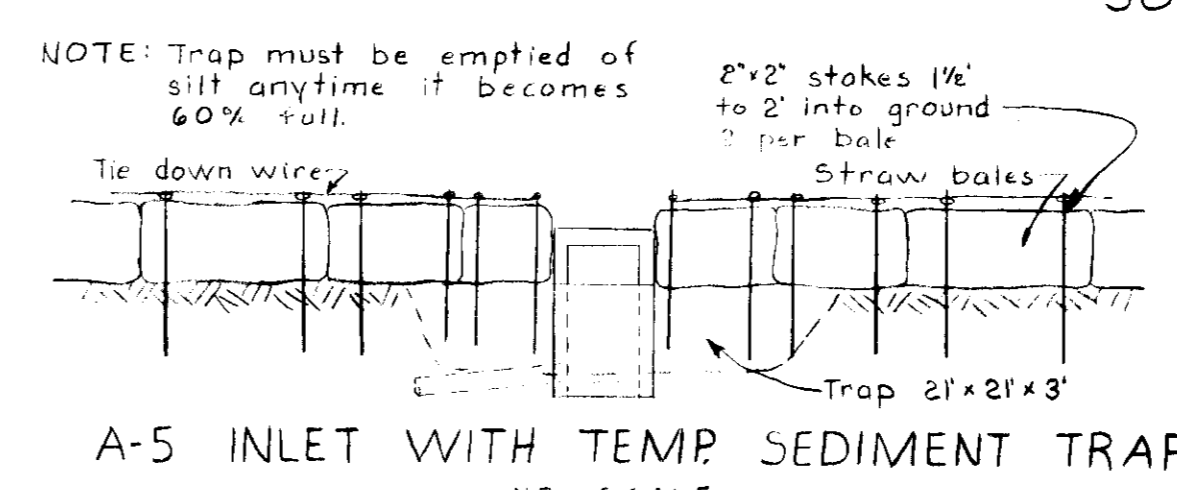 NOTE: Trap must be emptied of
silt anytime it becomes
60% full.
2"x2" stakes 1½'
to 2' into ground
per bale
Tie down wire
Straw bales
Trap 21' x 21' x 3'
A-5 INLET WITH TEMP. SEDIMENT TRAP